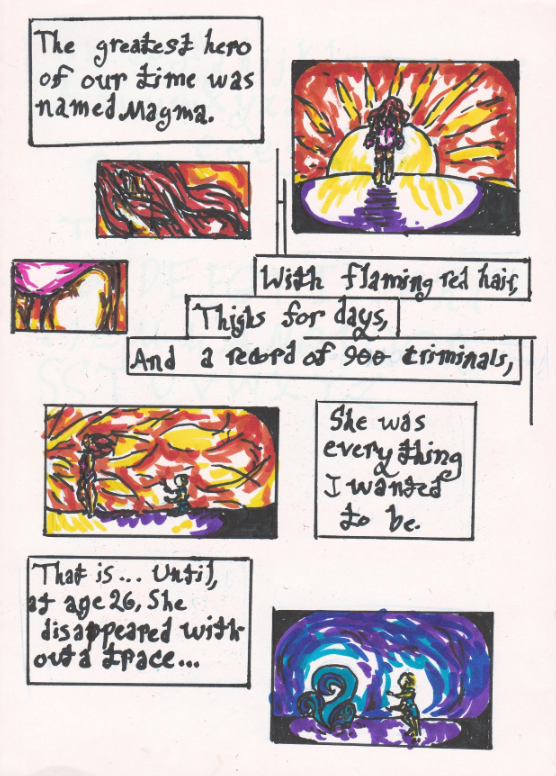 The greatest hero
of our time was
named Magma.
With flaming red hair,
Thighs for days,
And a record of 900 criminals,
She was
everything
I wanted
to be.
That is... Until,
at age 26, She
disappeared with-
out a trace...